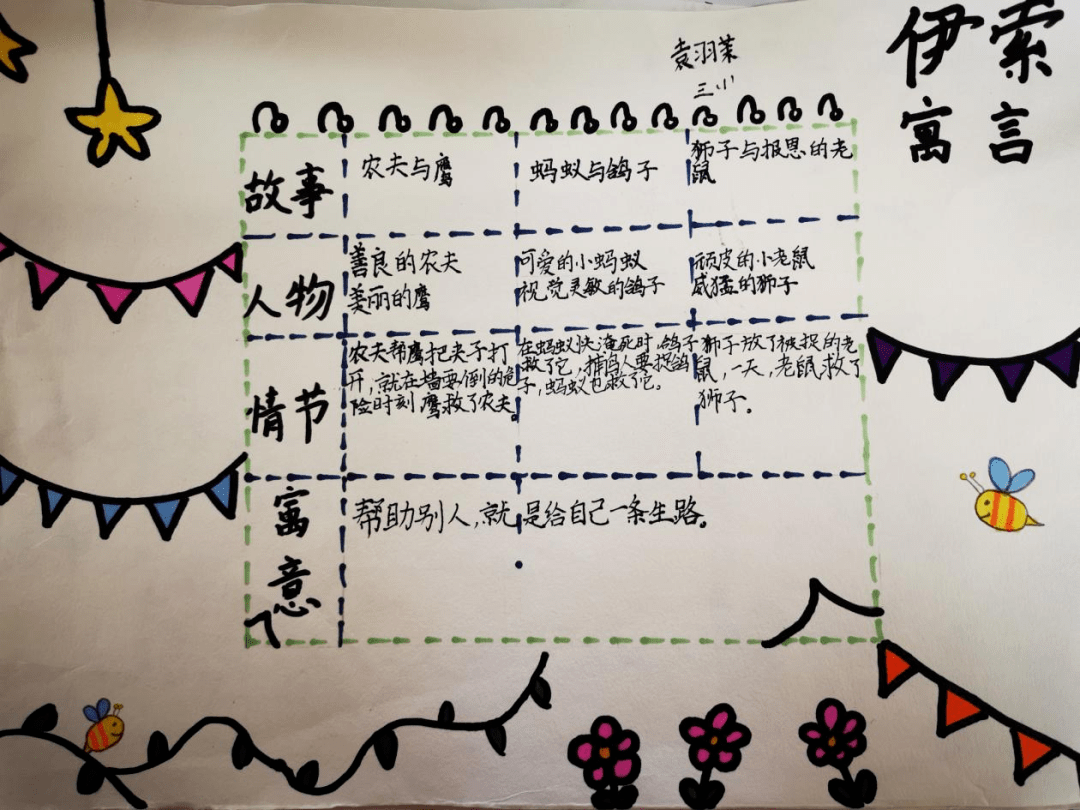 伊索
寓言
袁羽茉
三小
故事
农夫与鹰
蚂蚁与鸽子
狮子与报恩的老
鼠
人物
善良的农夫
美丽的鹰
可爱的小蚂蚁
视觉灵敏的鸽子
顽皮的小老鼠
威猛的狮子
情节
农夫帮鹰把夹子打
开,就在墙要倒的危
险时刻,鹰救了农夫。
在蚂蚁快淹死时,鸽子
救了它,捕鸟人要捉鸽
子,蚂蚁也救了它。
狮子放了被捉的老
鼠,一天,老鼠救了
狮子。
寓
意
帮助别人,就是给自己一条生路。